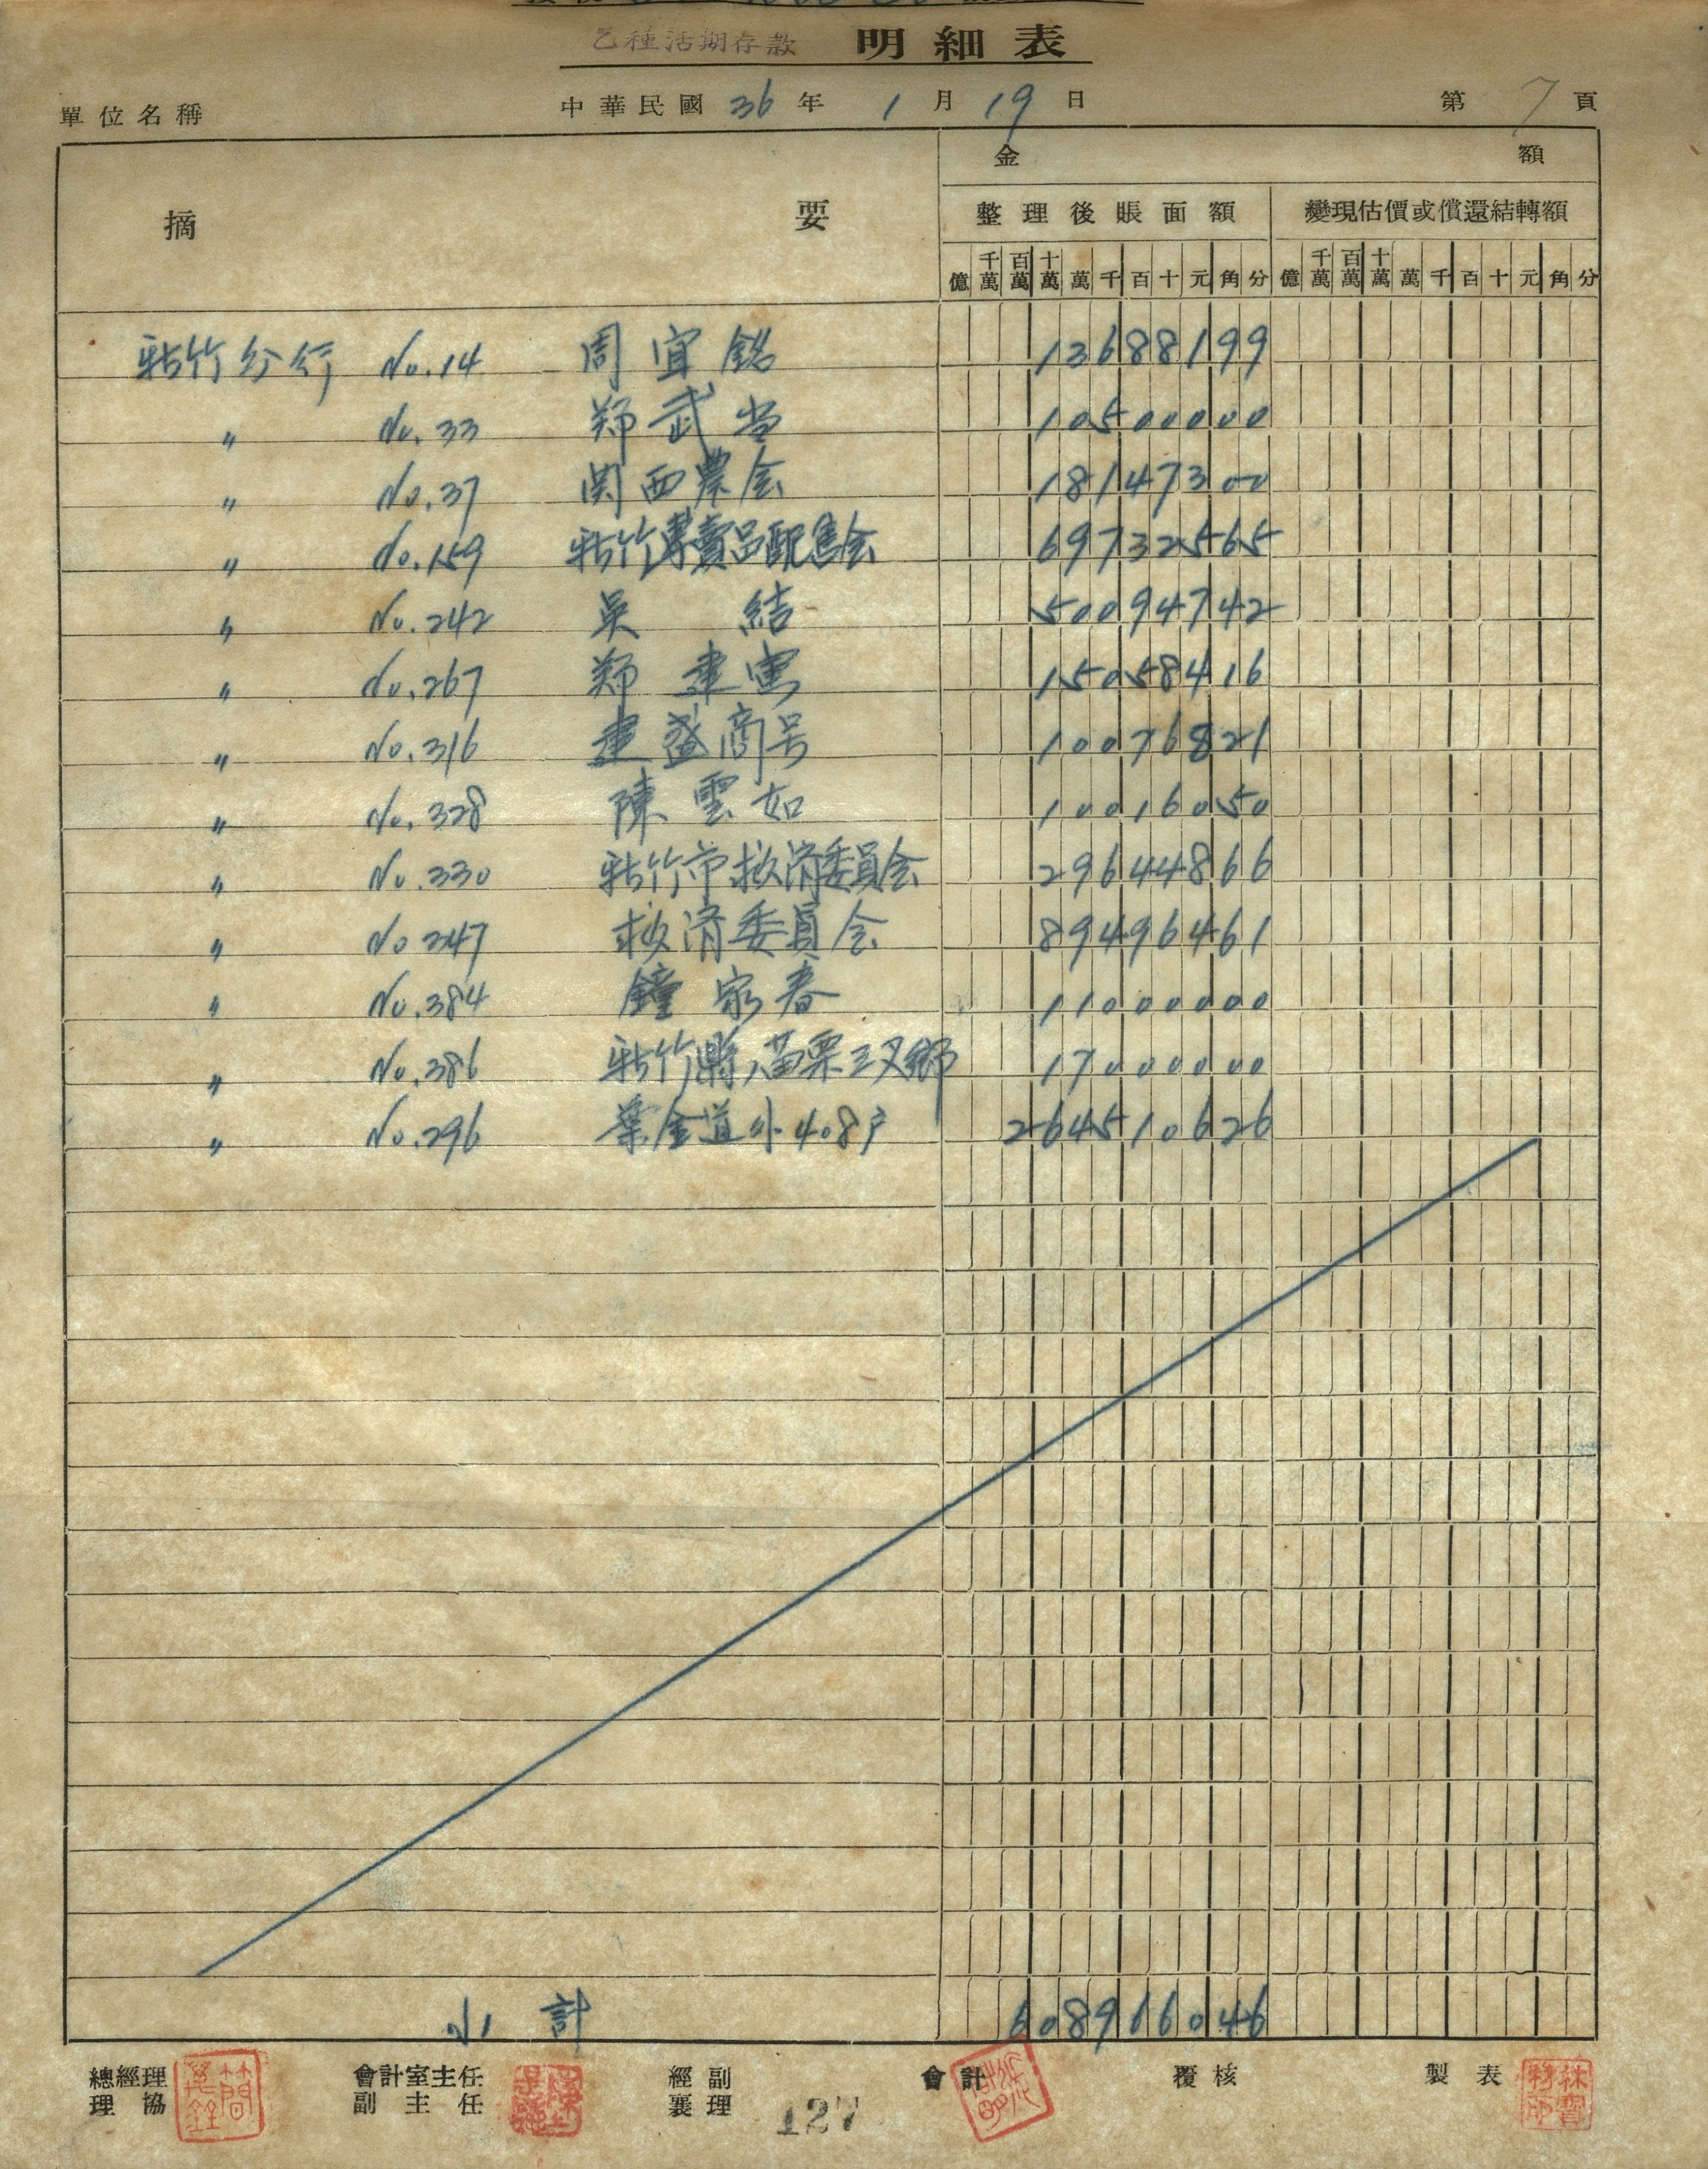 乙種活期存款 明細表
單位名稱 中華民國 36 年 1 月 19 日 第 7 頁
摘 要 金 額
整理後賬面額 變現估價或償還結轉額
億 千萬 百萬 十萬 萬 千 百 十 元 角 分 億 千萬 百萬 十萬 萬 千 百 十 元 角 分
新竹分行 No.14 周宜銘 13688199
〃 No.33 鄭武当 10500000
〃 No.37 関西農会 18147300
〃 No.159 新竹專賣品配售会 69732565
〃 No.242 吳結 50094742
〃 No.267 鄭建寅 15058416
〃 No.316 建盛商号 10076821
〃 No.328 陳雲如 10016050
〃 No.330 新竹市救済委員会 29644866
〃 No.247 救済委員会 89496461
〃 No.384 鐘家春 11000000
〃 No.386 新竹縣苗栗三叉鄉 17000000
〃 No.296 葉金道外408戶 264510626
小計 608966046
總經理 會計室主任 經副 會計 覆核 製表
理協 副主任 襄理
127